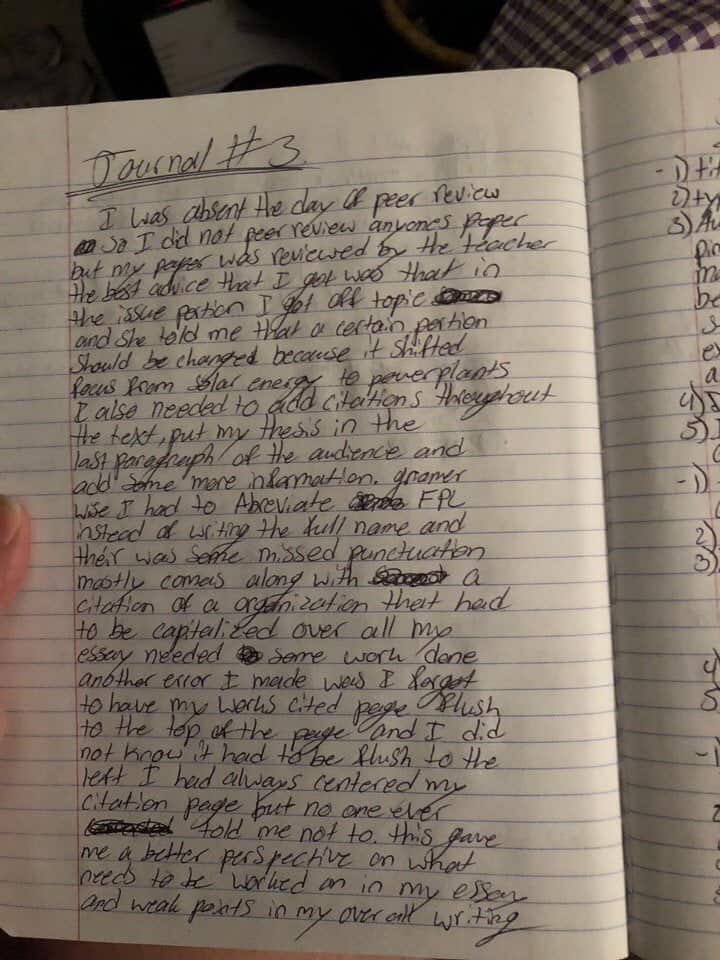 Journal #3
I was absent the day of peer review
so I did not peer review anyones paper
but my paper was reviewed by the teacher
the best advice that I got was that in
the issue portion I got off topic
and she told me that a certain portion
should be changed because it shifted
focus from solar energy to powerplants
I also needed to add citations throughout
the text, put my thesis in the
last paragraph of the audience and
add some more information. gramer
wise I had to Abreviate FPL
instead of writing the full name and
their was some missed punctuation
mostly comas along with a
citation of a organization that had
to be capitalized over all my
essay needed some work done
another error I made was I forgot
to have my works cited page flush
to the top of the page and I did
not know it had to be flush to the
left I had always centered my
citation page but no one ever
told me not to. this gave
me a better perspective on what
needs to be worked on in my essay
and weak points in my over all writing
-1) tit
2) ty
3) Au
pir
ma
be
s
ex
a
4) I
5) I
-1)
2)
3)
4)
5
-1
2